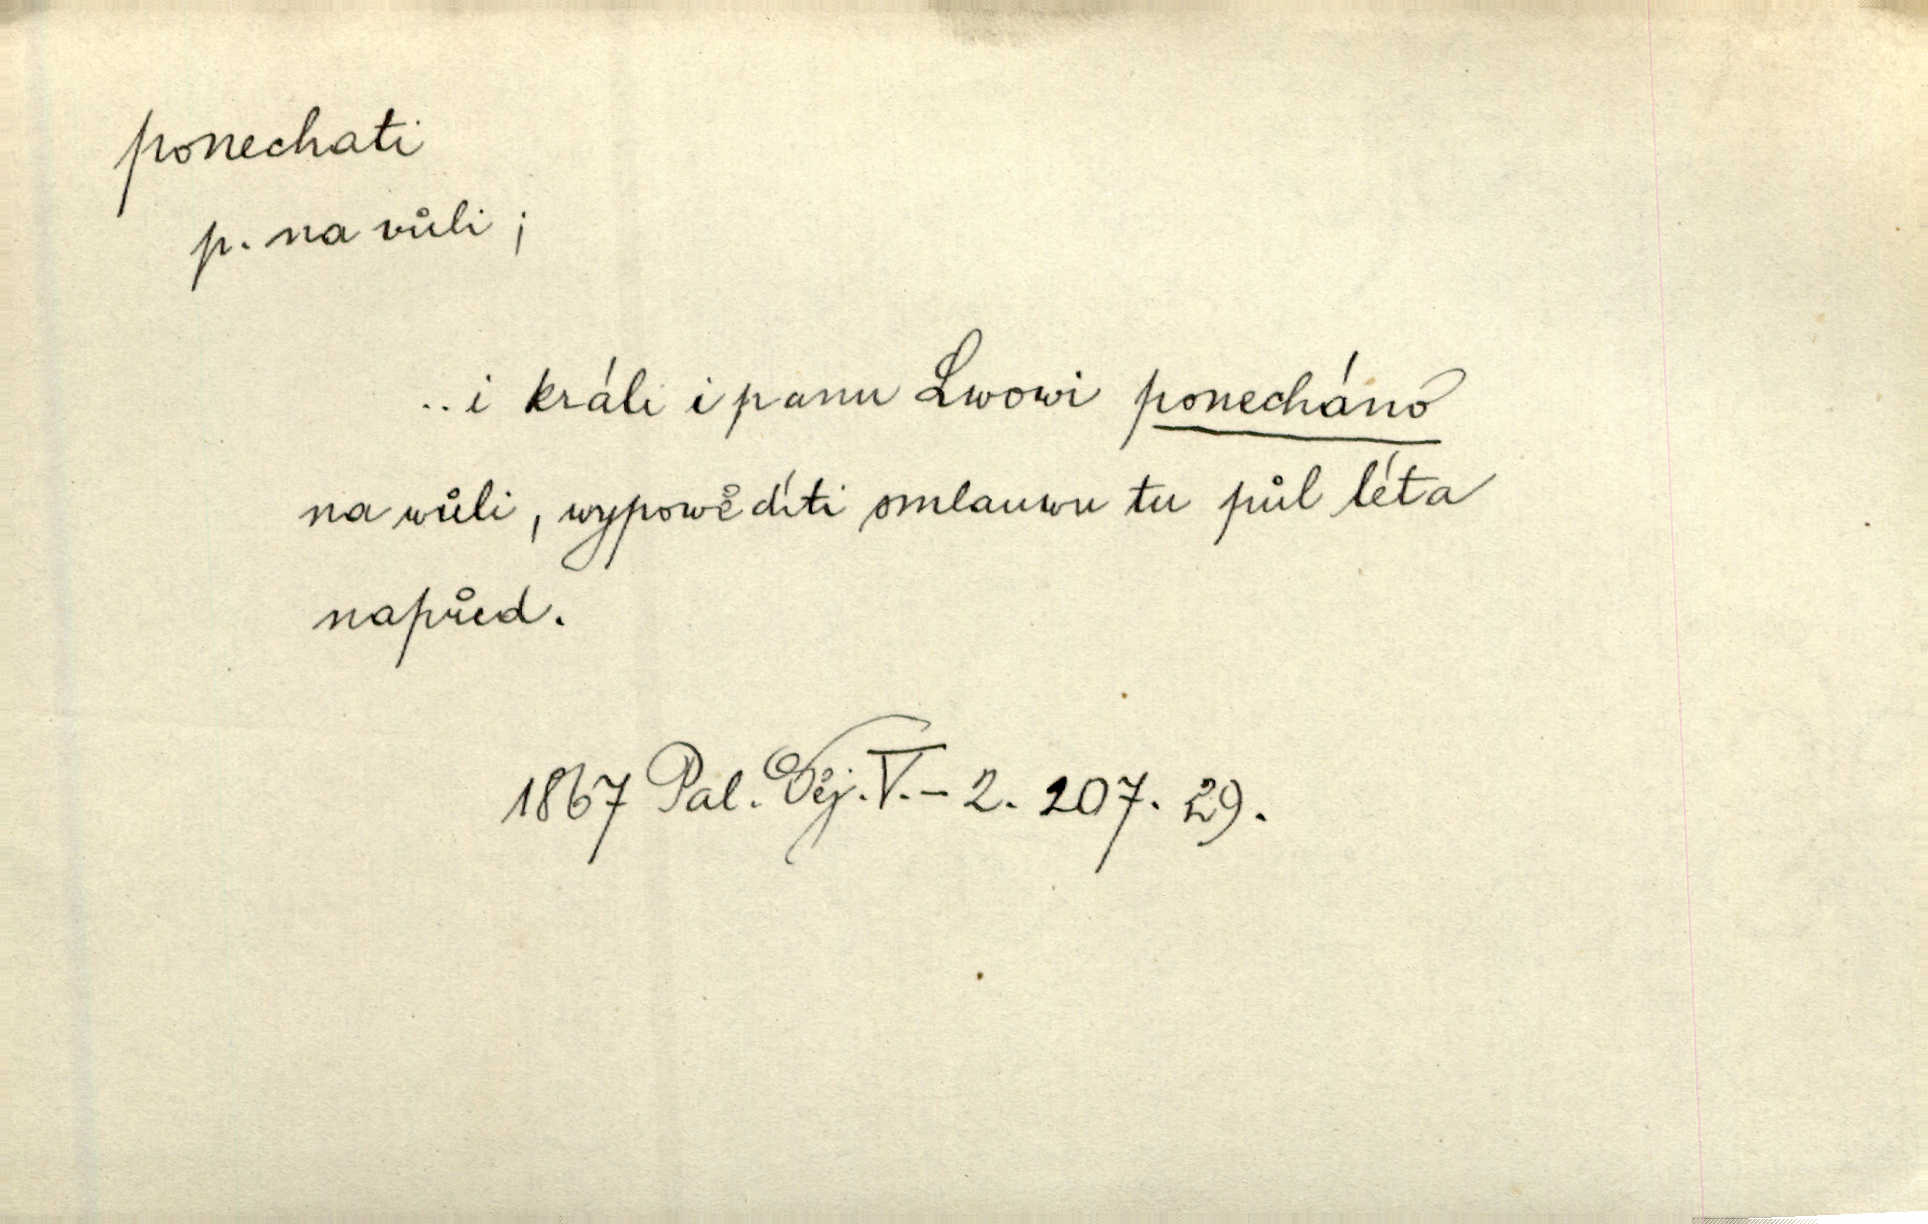 ponechati
p. na vůli;
.. i králi i panu Lwowi ponecháno
na wůli, wypowěděti smlauwu tu půl léta
napřed.
1867 Pal. Děj. V. – 2. 207. 29.